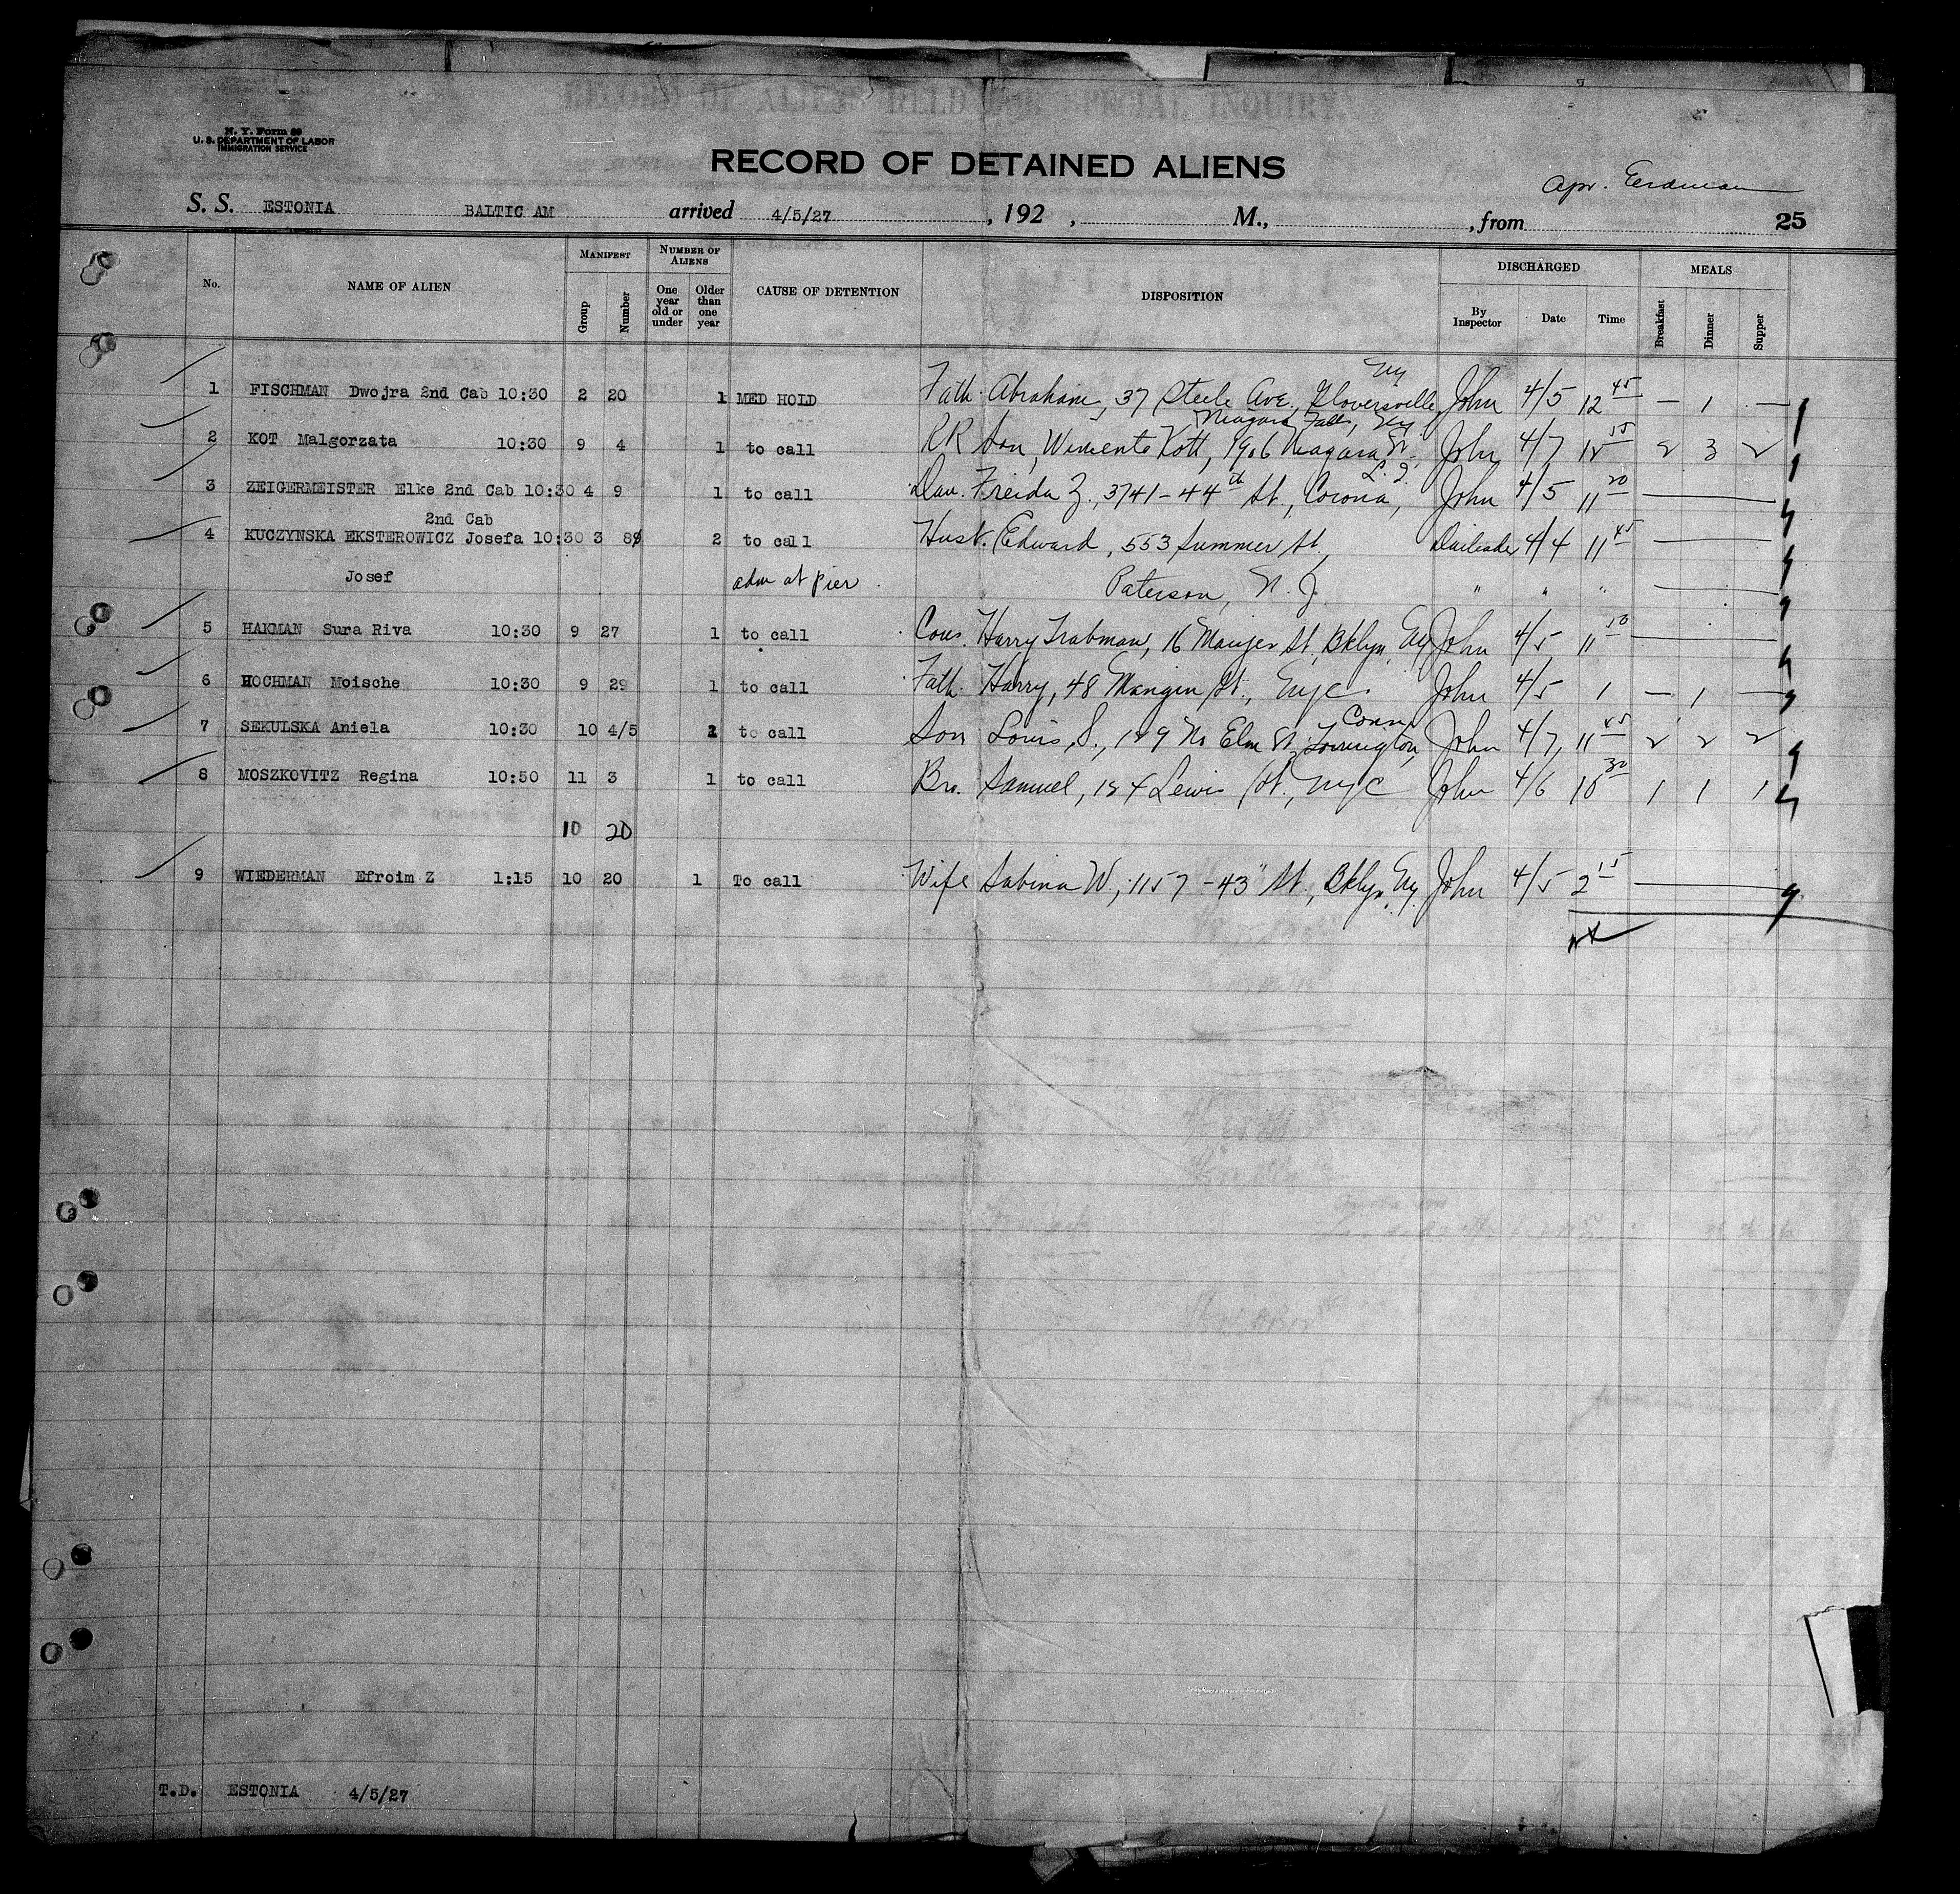 N. Y. Form 89
U. S. DEPARTMENT OF LABOR
IMMIGRATION SERVICE
RECORD OF DETAINED ALIENS
S. S. ESTONIA BALTIC AM arrived 4/5/27 , 192 , M., , from 25
No. NAME OF ALIEN MANIFEST Group Number NUMBER OF ALIENS One year old or under Older than one year CAUSE OF DETENTION DISPOSITION DISCHARGED By Inspector Date Time MEALS Breakfast Dinner Supper
NY
1 FISCHMAN Dwojra 2nd Cab 10:30 2 20 1 MED HOLD Fath. Abraham, 37 Steele Ave., Gloversville John 4/5 12 45 — 1 —
Niagara Falls, NY
2 KOT Malgorzata 10:30 9 4 1 to call RR Son, Kott, 1906 Niagara St. John 4/7 12 15 2 3 2
L. I.
3 ZEIGERMEISTER Elke 2nd Cab 10:30 4 9 1 to call Dau. Freida Z., 3741-44th St., Corona, John 4/5 11 20 —
2nd Cab
4 KUCZYNSKA EKSTEROWICZ Josefa 10:30 3 89 2 to call Husb. Edward, 553 Summer St, 4/4 11 45 —
Josef adm at Pier Paterson, N. J. " " " —
5 HAKMAN Sura Riva 10:30 9 27 1 to call Cous. Harry Trabman, 16 Maujer St, Bklyn, NY John 4/5 11 50 —
6 HOCHMAN Moische 10:30 9 29 1 to call Fath. Harry, 48 Mangin St., NYC John 4/5 1 — 1 —
Conn
7 SEKULSKA Aniela 10:30 10 4/5 2 to call Son Louis, S., 189 No Elm St, Torrington, John 4/7, 11 45 2 2 2
8 MOSZKOVITZ Regina 10:50 11 3 1 to call Bro. Samuel, 184 Lewis St., NYC John 4/6 10 30 1 1 1
10 20
9 WIEDERMAN Efroim Z 1:15 10 20 1 To call Wife Sabina W, 1157-43" St., Bklyn, NY. John 4/5 2 15 —
T.D. ESTONIA 4/5/27